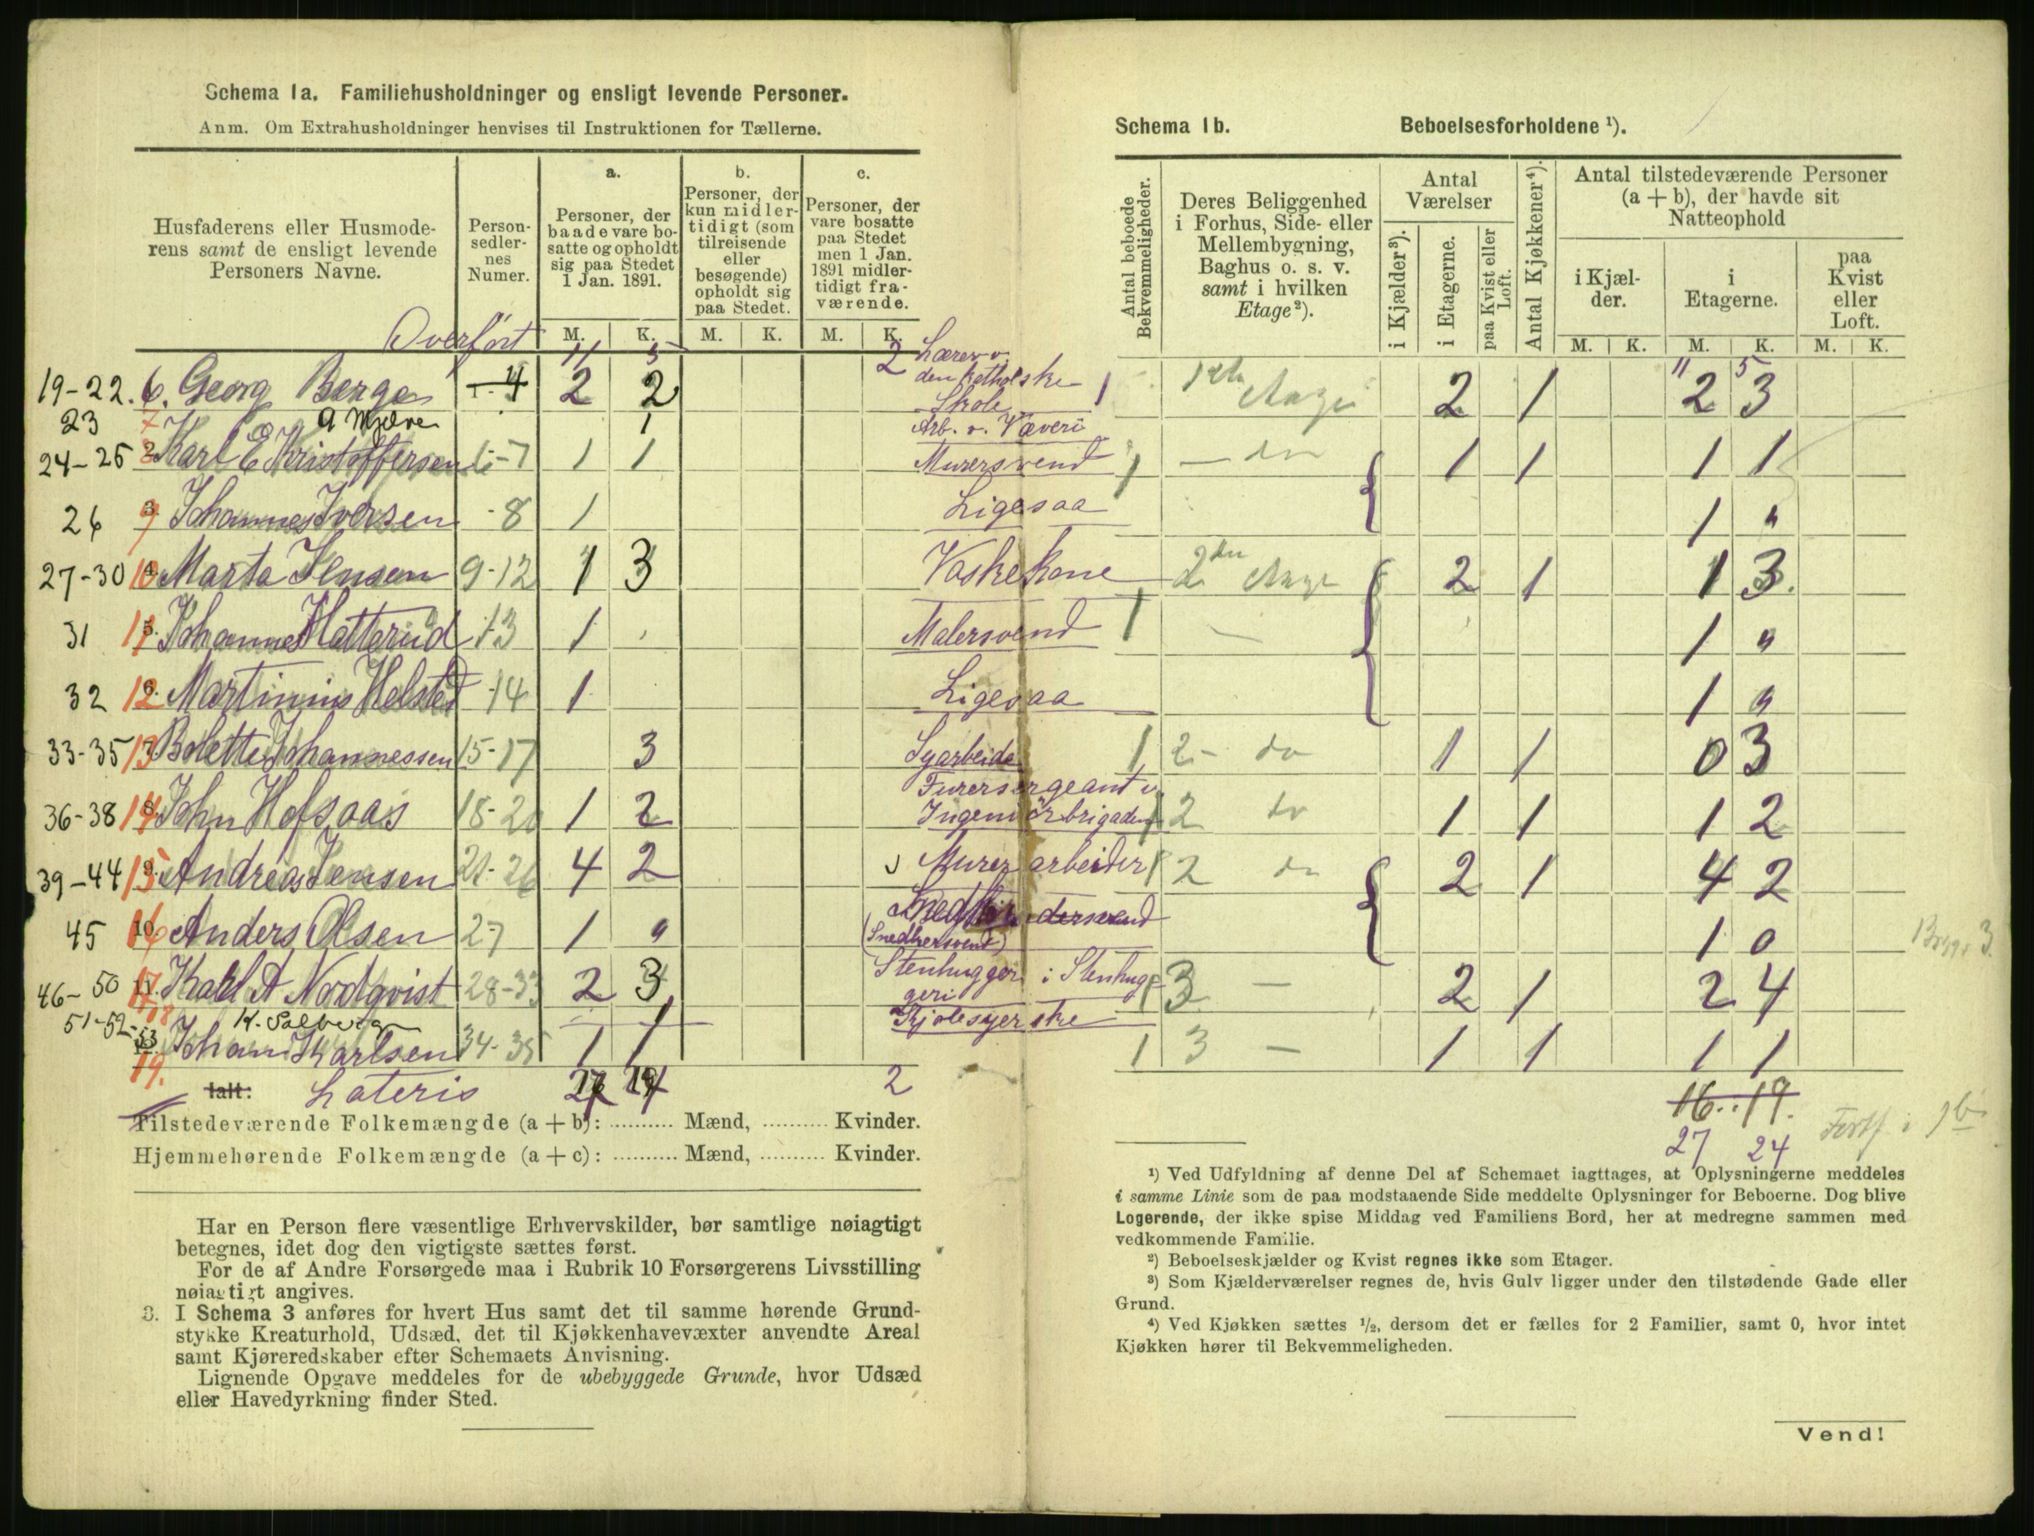 Schema 1a. Familiehusholdninger og ensligt levende Personer.
Anm. Om Extrahusholdninger henvises til Instruktionen for Tællerne.
Husfaderens eller Husmoderens samt de ensligt levende Personers Navne.
Personsedlernes Numer.
a. Personer, der baade vare bosatte og opholdt sig paa Stedet 1 Jan. 1891.
b. Personer, der kun midlertidigt (som tilreisende eller besøgende) opholdt sig paa Stedet.
c. Personer, der vare bosatte paa Stedet men 1 Jan. 1891 midlertidigt fraværende.
M. K. M. K. M. K.
Overført 11 5 2
19-22. 6. Georg Berge 1-4 2 2 Lærer v. den katholske Skole
23 7 A Mjelve 1 Arb. v. Væveri
24-25 8 2. Karl E Kristoffersen 6-7 1 1 Murersvend
26 9 3. Johannes Iversen -8 1 Ligesaa
27-30 10 4. Marta Jensen 9-12 1 3 Vaskekone
31 11 5. Johannes Hatterud 13 1 Malersvend
32 12 6. Martinius Helsted -14 1 Ligesaa
33-35 13 7. Bolette Johannessen 15-17 3 Syarbeide
36-38 14 8. John Hofsaas 18-20 1 2 Furersergeant v Ingeniørbrigaden
39-44 15 9. Andreas Jensen 21-26 4 2 Murerarbeider
45 16 10. Anders Olsen 27 1 " (Snedkersvend)
46-50 17 11. Karl A Nordqvist 28-33 2 3 Stenhugger i Stenhuggeri
51-52- 18 K. Solberg 1 Kjolesyerske
53 19. 12. Johan Karlsen 34-35 1 1
Ialt: Lateris 2
Tilstedeværende Folkemængde (a + b): .......... Mænd, .......... Kvinder.
Hjemmehørende Folkemængde (a + c): .......... Mænd, .......... Kvinder.
Har en Person flere væsentlige Erhvervskilder, bør samtlige nøiagtigt
betegnes, idet dog den vigtigste sættes først.
For de af Andre Forsørgede maa i Rubrik 10 Forsørgerens Livsstilling
nøiagtigt angives.
3. I Schema 3 anføres for hvert Hus samt det til samme hørende Grund-
stykke Kreaturhold, Udsæd, det til Kjøkkenhavevæxter anvendte Areal
samt Kjøreredskaber efter Schemaets Anvisning.
Lignende Opgave meddeles for de ubebyggede Grunde, hvor Udsæd
eller Havedyrkning finder Sted.
Schema 1b. Beboelsesforholdene ¹).
Antal beboede Bekvemmeligheder.
Deres Beliggenhed i Forhus, Side- eller Mellembygning, Baghus o. s. v. samt i hvilken Etage²).
Antal Værelser
i Kjælder³).
i Etagerne.
paa Kvist eller Loft.
Antal Kjøkkener⁴).
Antal tilstedeværende Personer (a + b), der havde sit Natteophold
i Kjælder.
i Etagerne.
paa Kvist eller Loft.
M. K. M. K. M. K.
11 5
1 1ste Etage 2 1 2 3
1 — do 1 1 1 1
1 "
2den Etage 2 1 1 3.
1 — 1 "
1 "
1 2- do 1 1 0 3
1 2 do 1 1 1 2
1 2 do 2 1 4 2
1 0
Bryg. 3.
1 3 — 2 1 2 4
1 3 — 1 1 1 1
16..19.
27 24
Forts i 1b
¹) Ved Udfyldning af denne Del af Schemaet iagttages, at Oplysningerne meddeles
i samme Linie som de paa modstaaende Side meddelte Oplysninger for Beboerne. Dog blive
Logerende, der ikke spise Middag ved Familiens Bord, her at medregne sammen med
vedkommende Familie.
²) Beboelseskjælder og Kvist regnes ikke som Etager.
³) Som Kjælderværelser regnes de, hvis Gulv ligger under den tilstødende Gade eller
Grund.
⁴) Ved Kjøkken sættes ¹/₂, dersom det er fælles for 2 Familier, samt 0, hvor intet
Kjøkken hører til Bekvemmeligheden.
Vend!